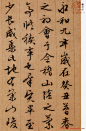 永和九年歲在癸丑暮春
之初會于會稽山陰之蘭
亭脩禊事也羣賢畢至
少長咸集此地有崇山峻